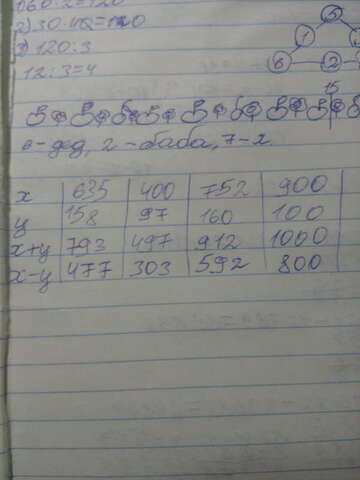 60·2=120
2) 30·4
3) 120:3
12:3=4
5
1
6
2
15
2-баба, 7-
x 635 400 752 900
y 158 97 160 100
x+y 793 497 912 1000
x-y 477 303 592 800